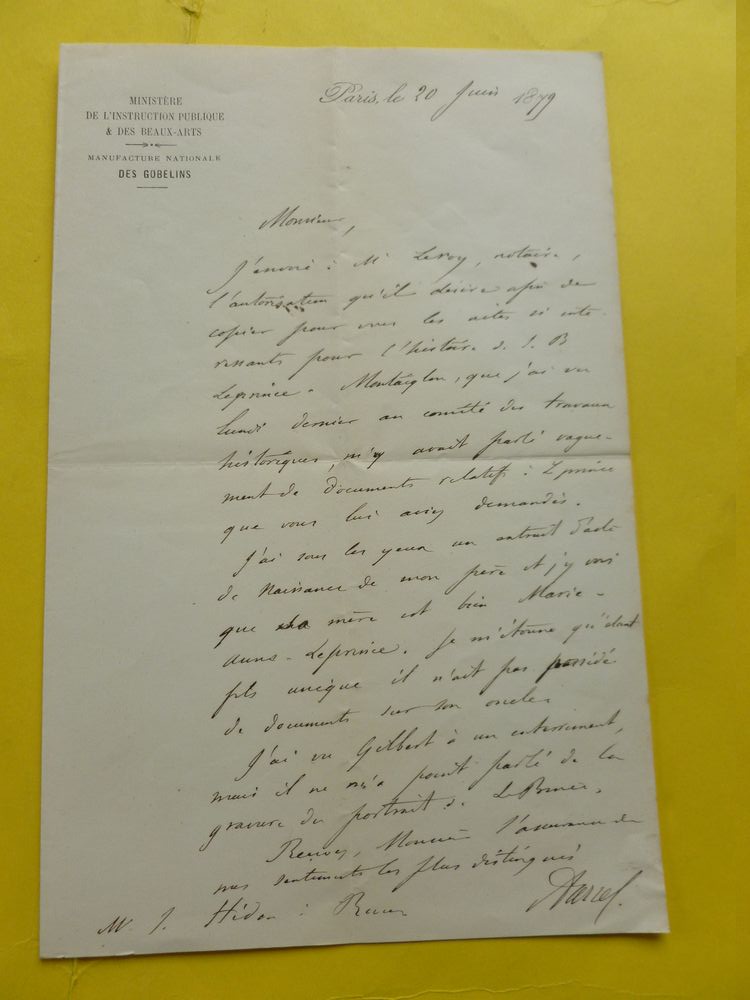 MINISTÈRE
DE L'INSTRUCTION PUBLIQUE
& DES BEAUX-ARTS
MANUFACTURE NATIONALE
DES GOBELINS
Paris, le 20 Juin 1879
Monsieur,
J'envoie à Mr Leroy, notaire,
l'autorisation qu'il désire afin de
copier pour vous les actes si inté-
ressants pour l'histoire de J. B
Leprince. Montaiglon, que j'ai vu
Lundi dernier au comité des travaux
historiques, m'y avait parlé vague-
ment de documents relatifs à Leprince
que vous lui aviez demandés.
J'ai sous les yeux un extrait d'acte
de naissance de mon père et j'y vois
que sa mère est bien Marie-
Anne-Leprince. Je m'étonne qu'étant
fils unique il n'ait pas possédé
de documents sur son oncle.
J'ai vu Gilbert à un enterrement,
mais il ne m'a point parlé de la
gravure du portrait de
Recevez, Monsieur l'assurance de
mes sentiments les plus distingués
Darcel.
Mr J. Hédou à Rouen